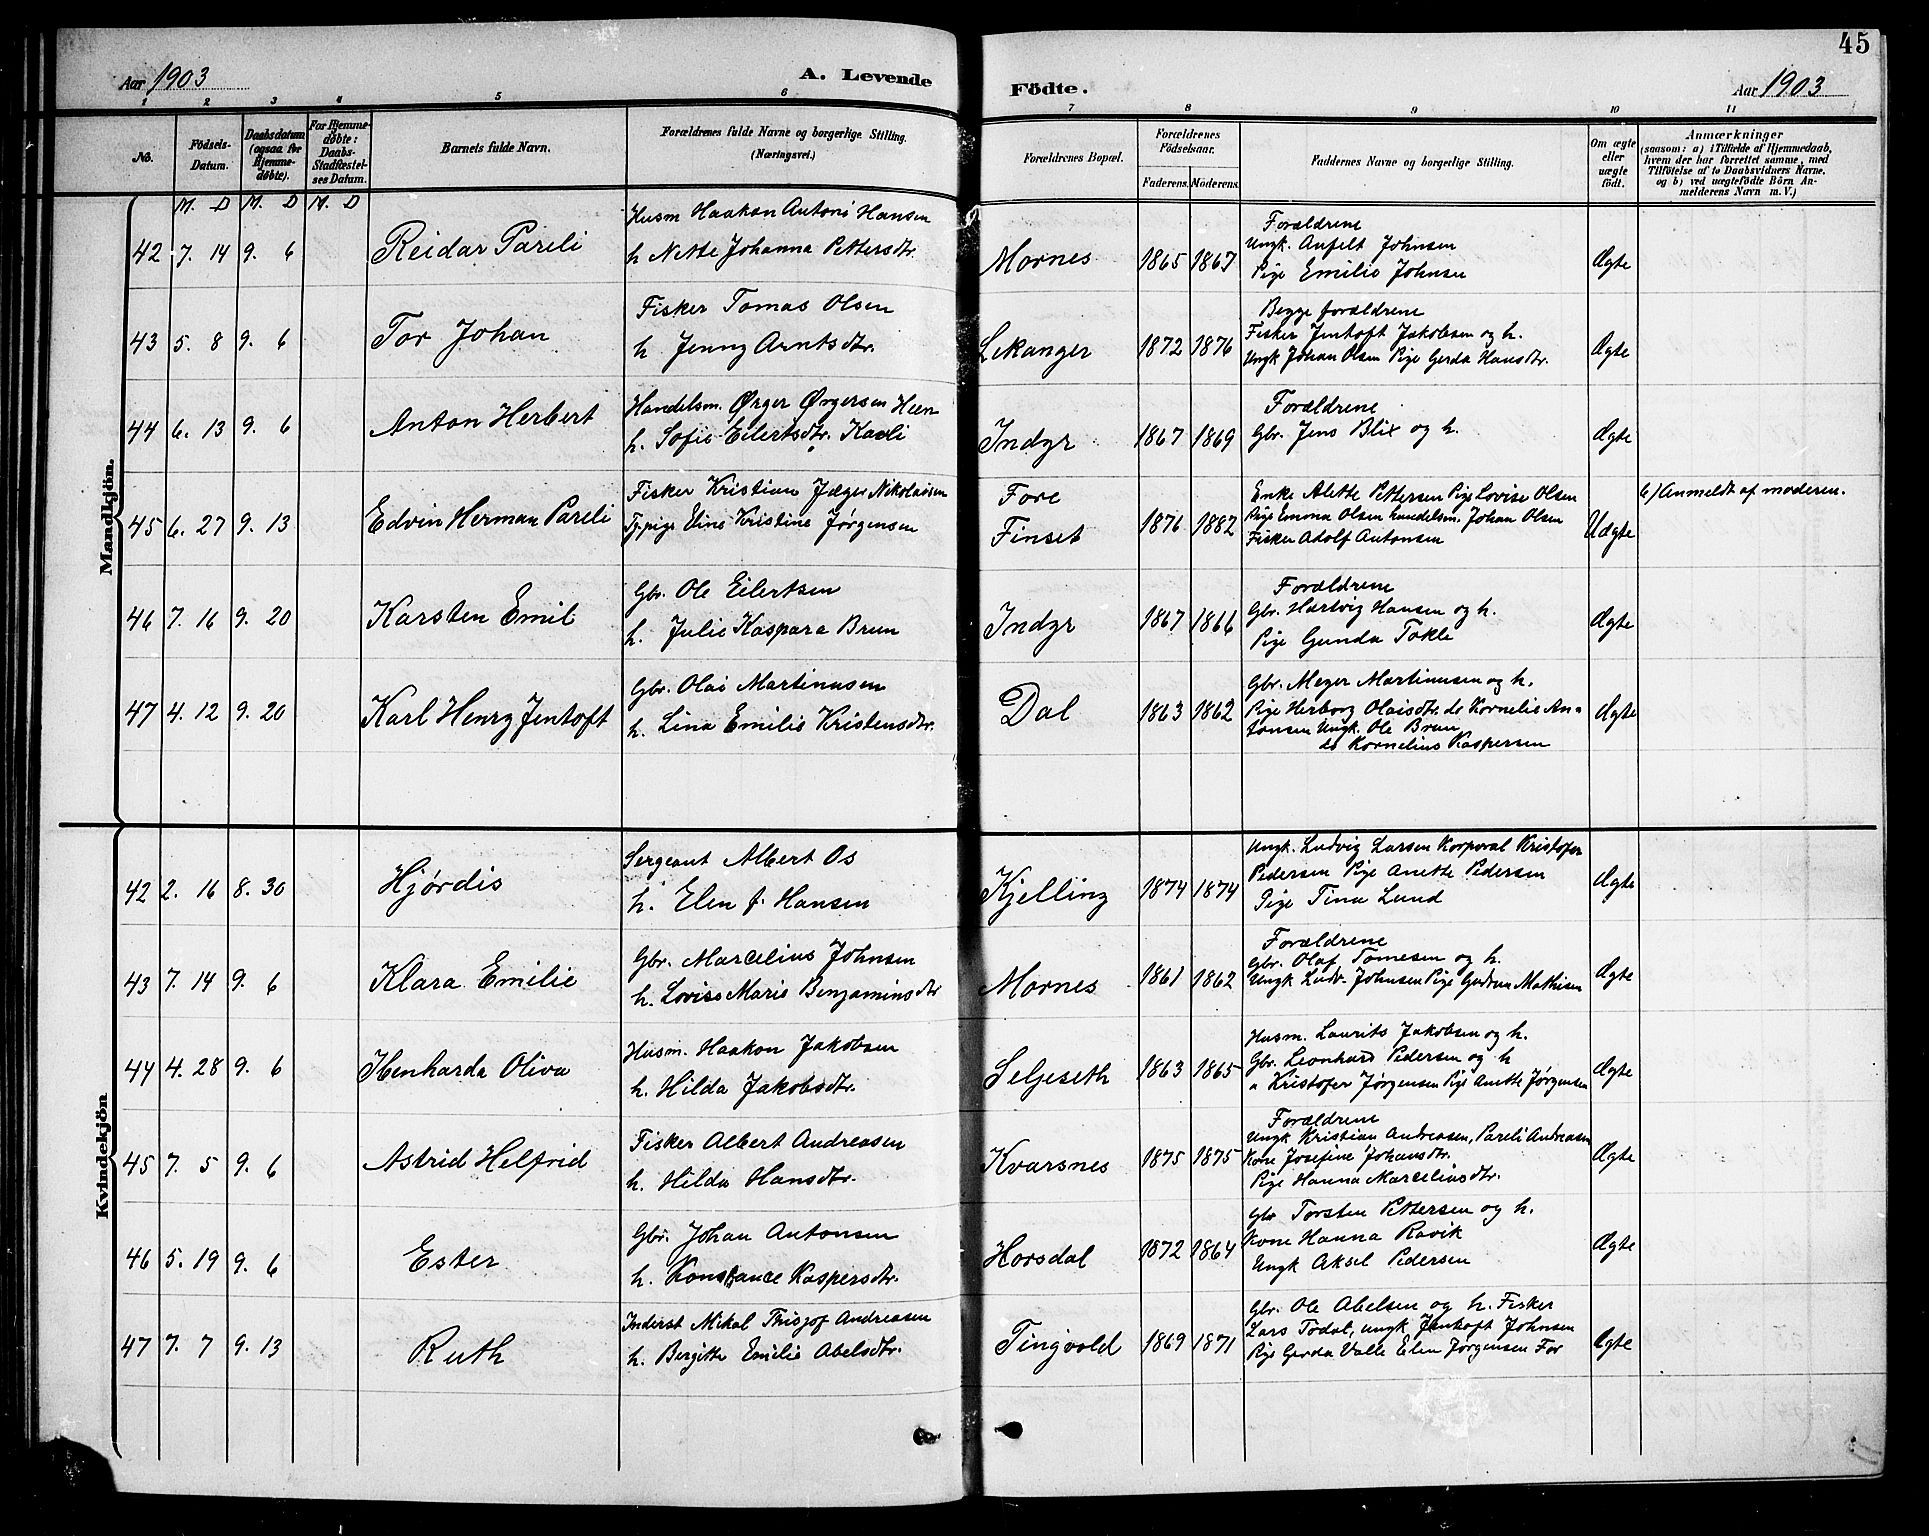 45
Aar 1903
A. Levende
Födte.
Aar 1903
1 2 3 4 5 6 7 8 9 10 11
No.
Födsels-
Datum.
Daabsdatum
(ogsaa for
Hjemme-
döbte).
For Hjemme-
döbte:
Daabs-
Stadfæstel-
ses Datum.
Barnets fulde Navn.
Forældrenes fulde Navne og borgerlige Stilling.
(Næringsvei.)
Forældrenes Bopæl.
Forældrenes
Födselsaar.
Faderens. Möderens.
Faddernes Navne og borgerlige Stilling.
Om ægte
eller
uægte
födt.
Anmærkninger
(saasom: a) i Tilfælde af Hjemmedaab,
hvem der har forrettet samme, med
Tilföielse af to Daabsvidners Navne,
og b) ved uægtefödte Börn An-
melderens Navn m. V.)
M. D M. D M. D
Mandkjön.
42 7. 14 9. 6 Reidar Pareli
Husm Haakon Antoni Hansen
h Nette Johanna Pettersdtr.
Mornes 1865 1867
Forældrene
Ungk. Anfelt Johnsen
Pige Emilie Johnsen
Ægte
43 5. 8 9. 6 Tor Johan
Fisker Tomas Olsen
h Jenny Arntsdtr.
Lekanger 1872 1876
Begge forældrene
Fisker Jentoft Jakobsen og h.
Ungk Johan Olsen Pige Gerda Hansdtr.
Ægte
44 6. 13 9. 6 Anton Herbert
Handelsm. Ørger Ørgersen Heen
h. Sofie Eilertsdtr. Kavli
Indyr 1867 1869
Forældrene
Gbr. Jens Blix og h.
Ægte
45 6. 27 9. 13 Edvin Herman Pareli
Fisker Kristian Jæger Nikolaisen
Tj.pige Eline Kristine Jørgensen
Fore
Finset
1876 1882
Enke Alette Pettersen Pige Lovise Olsen
Pige Emma Olsen handelsm. Johan Olsen
Fisker Adolf Antonsen
Uægte
b) Anmeldt af moderen.
46 7. 16 9. 20 Karsten Emil
Gbr. Ole Eilertsen
h. Julie Kaspara Brun
Indyr 1867 1866
Forældrene
Gbr. Hartvig Hansen og h.
Pige Gunda Tokle
Ægte
47 4. 12 9. 20 Karl Henry Jentoft
Gbr. Olai Martinusen
h. Lina Emilie Kristensdtr.
Dal 1863 1862
Gbr. Meyer Martinusen og h.
Pige Herborg Olaisdtr. do Kornelie An-
tonsen Ungk. Ole Brun
do Kornelius Kaspersen
Ægte
Kvindekjön
42 2. 16 8. 30 Hjørdis
Sergeant Albert Os
h. Elen f. Hansen
Kjelling 1874 1874
Ungk. Ludvig Larsen Korporal Kristofer
Pedersen Pige Anette Pedersen
Pige Tina Lund
Ægte
43 7. 14 9. 6 Klara Emilie
Gbr. Marcelius Johnsen
h. Lovise Marie Benjaminsdtr
Mornes 1861 1862
Forældrene
Gbr. Olaf Tomesen og h.
Ungk Ludv. Johnsen Pige Gudrun Mathisen
Ægte
44 4. 28 9. 6 Henharda Oliva
Husm. Haakon Jakobsen
h. Hilda Jakobsdtr.
Seljeseth 1863 1865
Husm. Laurits Jakobsen og h.
Gbr. Leonhard Pedersen og h
" Kristofer Jørgensen Pige Anette Jørgensen
Ægte
45 7. 5 9. 6 Astrid Helfrid
Fisker Albert Andreasen
h. Hilda Hansdtr.
Kvarsnes 1875 1875
Forældrene
Ungk Kristian Andreasen, Pareli Andreasen
Kone Josefine Johansdtr.
Pige Hanna Marceliusdtr.
Ægte
46 5. 19 9. 6 Ester
Gbr. Johan Antonsen
h. Konstance Kaspersdtr.
Horsdal 1872 1864
Gbr Torsten Pettersen og h.
Kone Hanna Ravik
Ungk Aksel Pedersen
Ægte
47 7. 7 9. 13 Ruth
Inderst Mikal Thisjof Andreasen
h. Birgitte Emilie Abelsdtr.
Tingvold 1869 1871
Gbr. Ole Abelsen og h. Fisker
Lars Todal, ungk Jentoft Johnsen
Pige Gerda Valle Elen Jørgensen For
Ægte